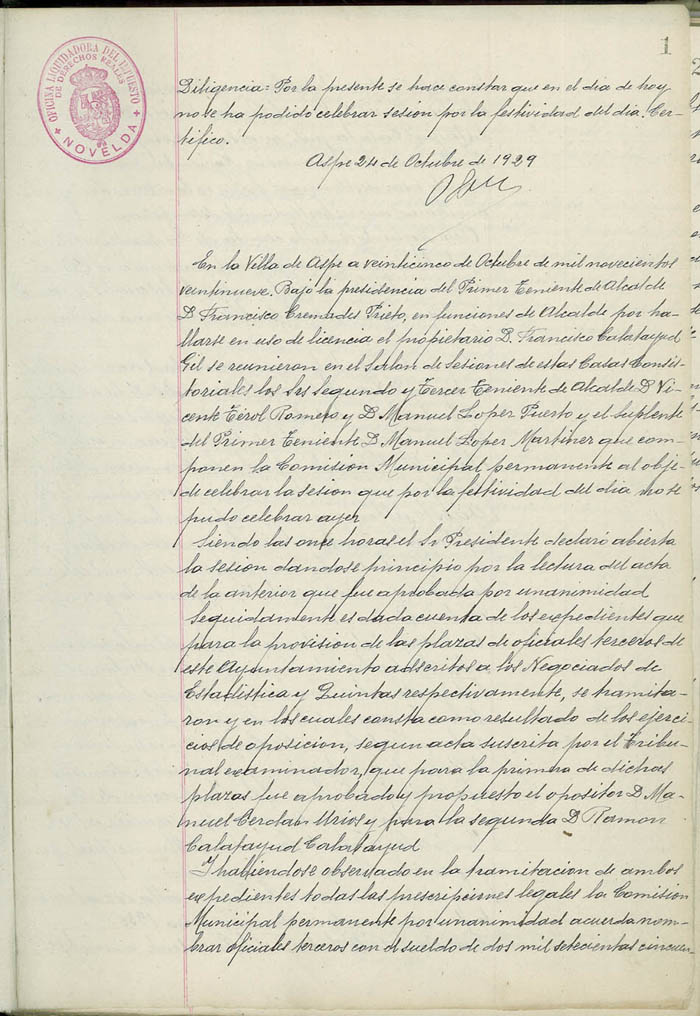 1
OFICINA LIQUIDADORA DEL IMPUESTO
DE DERECHOS REALES
NOVELDA
Diligencia: Por la presente se hace constar que en el dia de hoy
no se ha podido celebrar sesion por la festividad del dia. Cer-
tifico.
Aspe 24 de Octubre de 1929
En la Villa de Aspe a veinticinco de Octubre de mil novecientos
veintinueve. Bajo la presidencia del Primer Teniente de Alcalde
D. Francisco Cremades Prieto, en funciones de Alcalde por ha-
llarse en uso de licencia el propietario D. Francisco Calatayud
Gil se reunieron en el Salon de Sesiones de estas Casas Consis-
toriales los Srs Segundo y Tercer Teniente de Alcalde D Vi-
cente Terol Romero y D Manuel Lopez Puerto y el Suplente
del Primer Teniente D Manuel Lopez Martinez que com-
ponen la Comision Municipal permanente al obje-
de celebrar la sesion que por la festividad del dia no se
pudo celebrar ayer
Siendo las once horas el Sr Presidente declaró abierta
la sesion dandose principio por la lectura del acta
de la anterior que fue aprobada por unanimidad
Seguidamente es dada cuenta de los expedientes que
para la provision de las plazas de oficiales terceros de
este Ayuntamiento adscritos a los Negociados de
Estadistica y Quintas respectivamente, se tramita-
ron y en los cuales consta como resultado de los ejerci-
cios de oposicion, segun acta suscrita por el Tribu-
nal examinador, que para la primera de dichas
plazas fue aprobado y propuesto el opositor D. Ma-
nuel Cerdan Urios y para la segunda D Ramon
Calatayud Calatayud
Y habiendose observado en la tramitacion de ambos
expedientes todas las prescripciones legales la Comision
Municipal permanente por unanimidad acuerda nom-
brar oficiales terceros con el sueldo de dos mil setecientas cincuen-